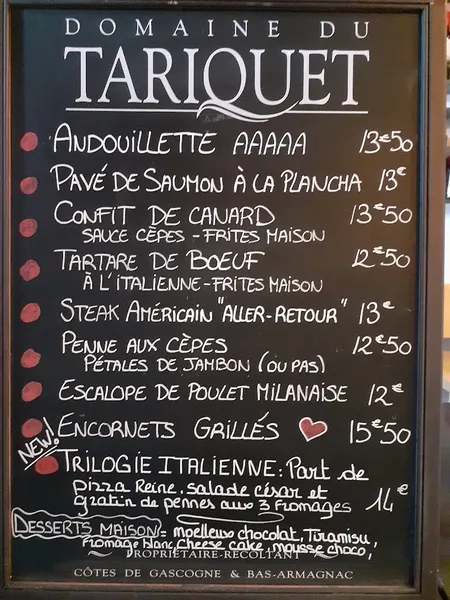 DOMAINE DU
TARIQUET
ANDOUILLETTE AAAAA 13€50
PAVÉ DE SAUMON À LA PLANCHA 13€
CONFIT DE CANARD 13€50
SAUCE CÈPES - FRITES MAISON
TARTARE DE BOEUF 12€50
À L'ITALIENNE - FRITES MAISON
STEAK AMÉRICAIN "ALLER-RETOUR" 13€
PENNE AUX CÈPES 12€50
PÉTALES DE JAMBON (OU PAS)
ESCALOPE DE POULET MILANAISE 12€
ENCORNETS GRILLÉS 15€50
NEW!
TRILOGIE ITALIENNE: Part de
pizza Reine, salade césar et
gratin de pennes aux 3 fromages 14€
DESSERTS MAISON = moelleux chocolat, Tiramisu,
fromage blanc, cheese cake, mousse choco,
PROPRIÉTAIRE-RÉCOLTANT
CÔTES DE GASCOGNE & BAS-ARMAGNAC